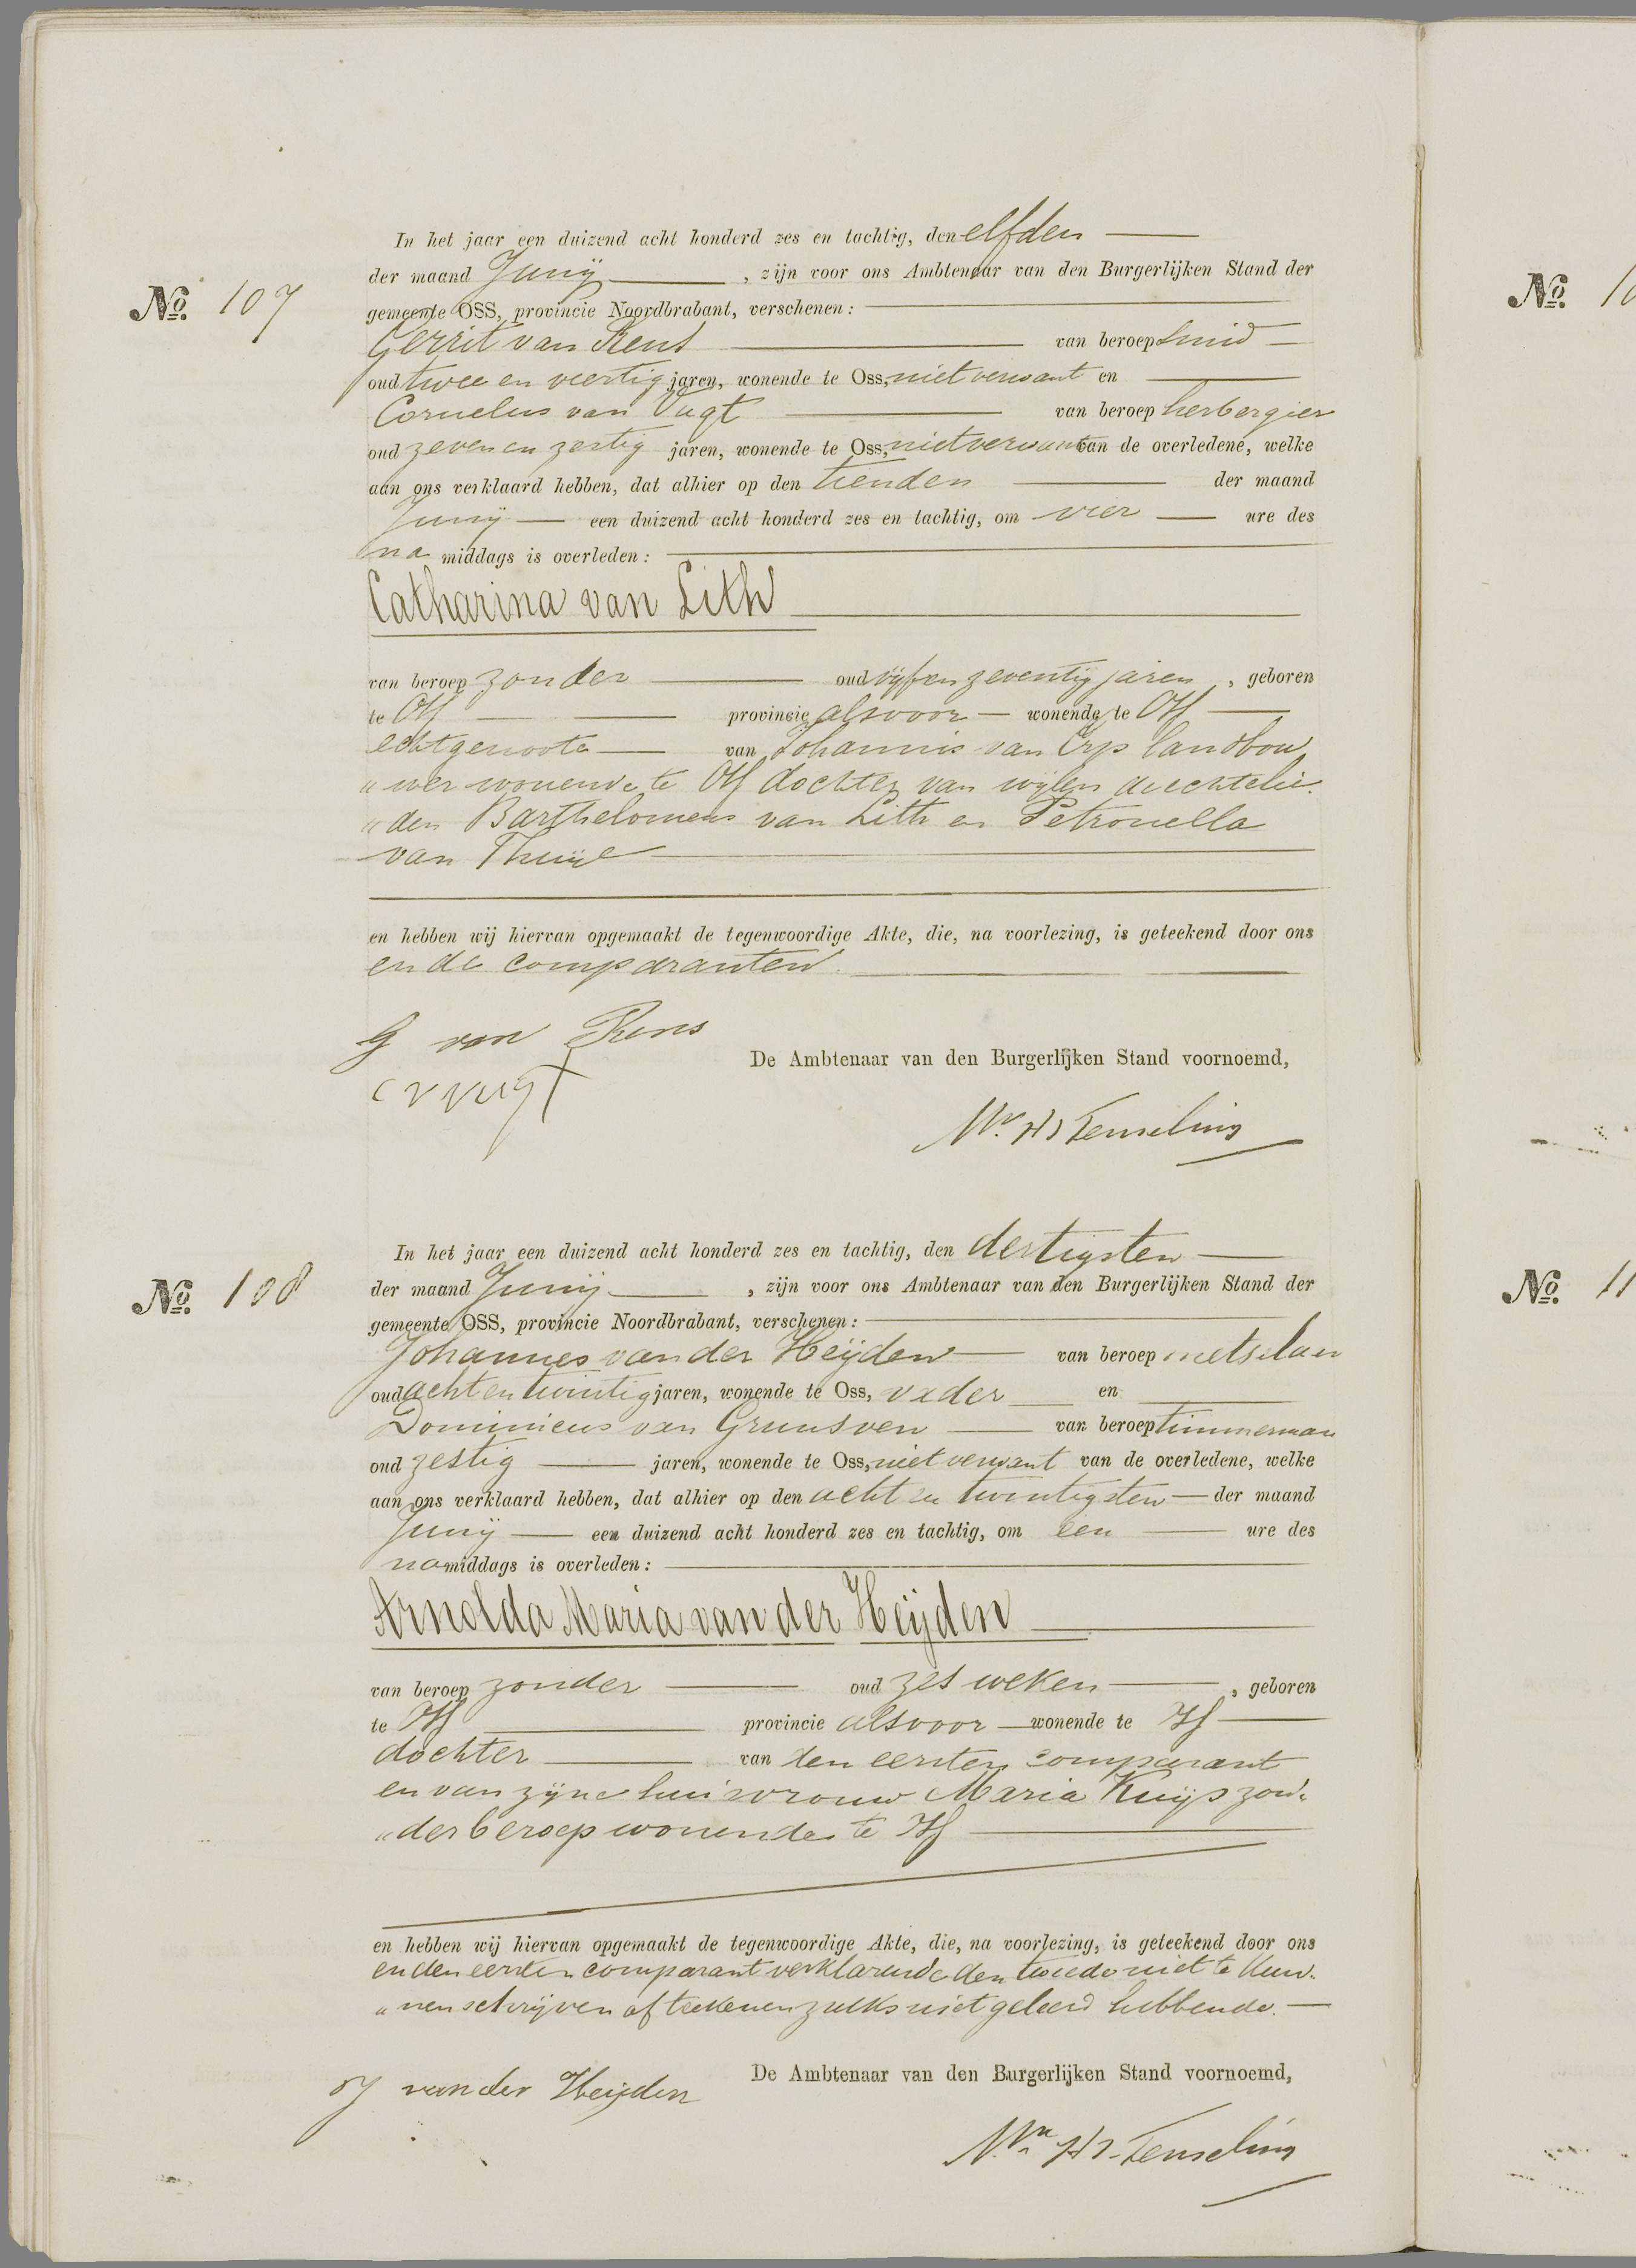 In het jaar een duizend acht honderd zes en tachtig, den elfden
der maand Junij, zijn voor ons Ambtenaar van den Burgerlijken Stand der
No. 107
gemeente OSS, provincie Noordbrabant, verschenen:
Gerrit van Rens van beroep smid
oud twee en veertig jaren, wonende te Oss, niet verwant en
Cornelus van Vugt van beroep herbergier
oud zeven en zestig jaren, wonende te Oss, niet verwant van de overledene, welke
aan ons verklaard hebben, dat alhier op den tienden der maand
Junij een duizend acht honderd zes en tachtig, om vier ure des
na middags is overleden:
Catharina van Lith
van beroep zonder oud vijf en zeventig jaren, geboren
te Oss provincie alsvoor wonende te Oss
echtgenoote van Johannis van Erp landbou
„wer wonende te Oss dochter van wijlen de echtelie
„den Barthelomeus van Lith en Petronella
van Thuijl
en hebben wij hiervan opgemaakt de tegenwoordige Akte, die, na voorlezing, is geteekend door ons
en de comparanten.
G van Rens
De Ambtenaar van den Burgerlijken Stand voornoemd,
C V Vugt
Mr. H
In het jaar een duizend acht honderd zes en tachtig, den dertigsten
No. 108
der maand Junij, zijn voor ons Ambtenaar van den Burgerlijken Stand der
gemeente OSS, provincie Noordbrabant, verschenen:
Johannes van der Heijden van beroep metselaer
oud acht en twintig jaren, wonende te Oss, vader en
Dominicus van Grunsven van beroep timmerman
oud zestig jaren, wonende te Oss, niet verwant van de overledene, welke
aan ons verklaard hebben, dat alhier op den acht en twintigsten der maand
Junij een duizend acht honderd zes en tachtig, om een ure des
na middags is overleden:
Arnolda Maria van der Heijden
van beroep zonder oud zes weken, geboren
te Oss provincie alsvoor wonende te Oss
dochter van den eersten comparant
en van zijne huisvrouw Maria Kuijs zon„
„der beroep wonende te Oss
en hebben wij hiervan opgemaakt de tegenwoordige Akte, die, na voorlezing, is geteekend door ons
en den eersten comparant verklarende den tweede niet te kun„
„nen schrijven of teekenen zulks niet geleerd hebbende.
De Ambtenaar van den Burgerlijken Stand voornoemd,
J van der Heijden
Mr. H
No. 10
No. 11